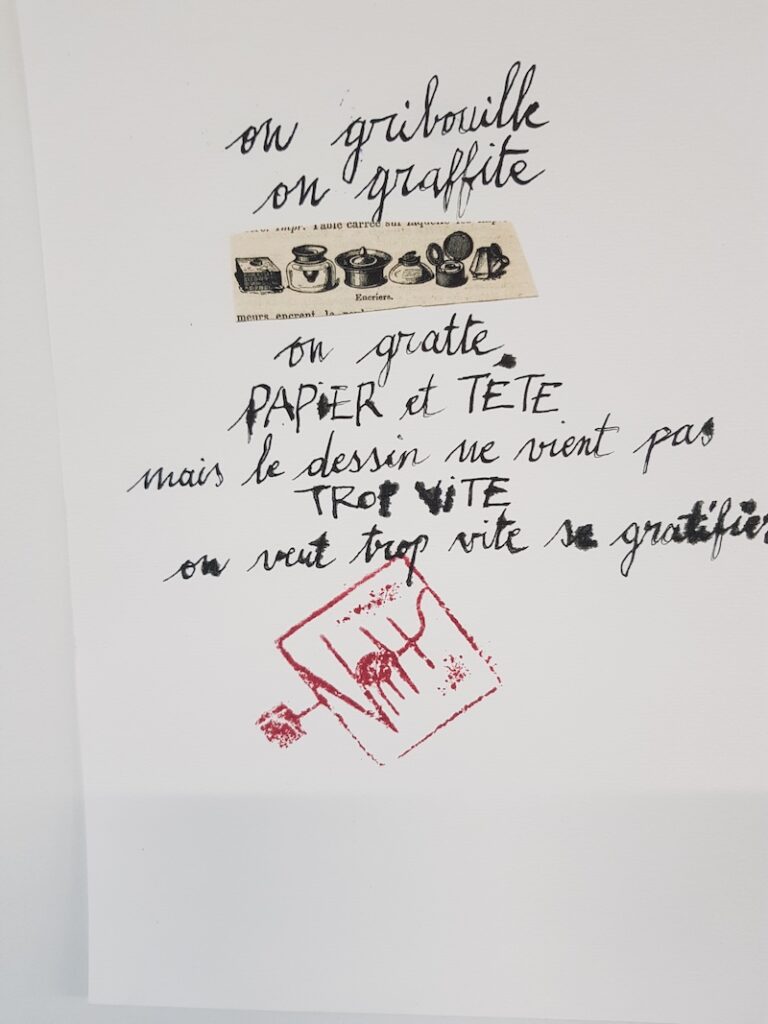 on gribouille
on graffite
Impr. Table carrée sur laquelle les
Encriers.
meurs encrent le
on gratte
PAPiER et TÊTE
mais le dessin ne vient pas
TROP ViTE
on veut trop vite se gratifier